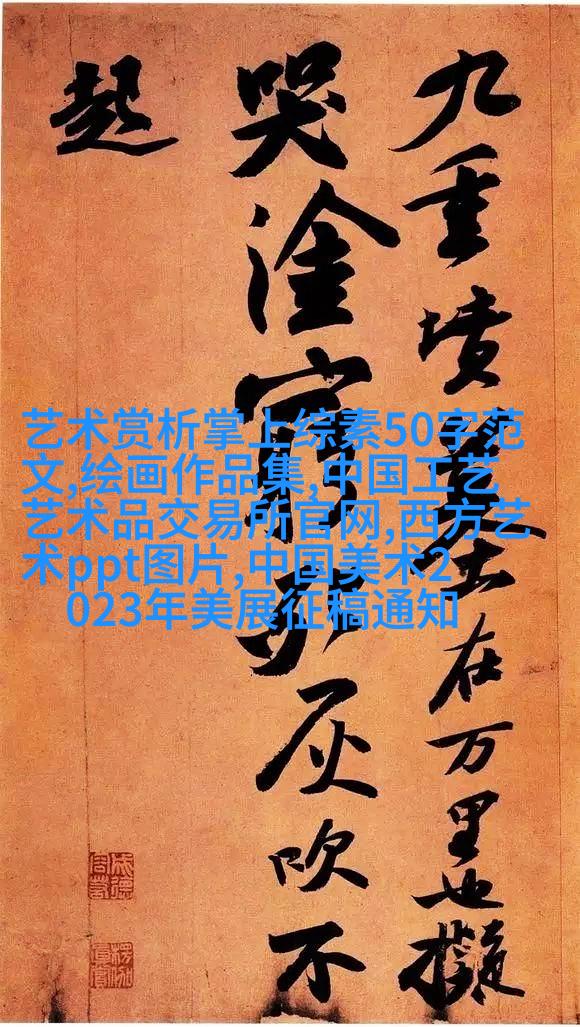 九重墳墓在万里也擬
哭塗窮死灰吹不
起
艺术赏析掌上综素50字范
文,绘画作品集,中国工艺
艺术品交易所官网,西方艺
术ppt图片,中国美术2
023年美展征稿通知
成德
容若
楞伽
真賞